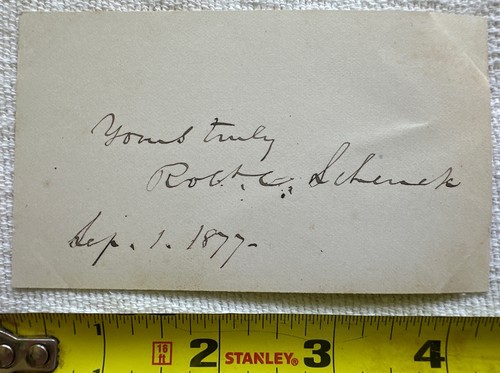 Yours truly
Robt. C. Schenck
Sep. 1. 1877-
1 16 ft 2 STANLEY® 3 4